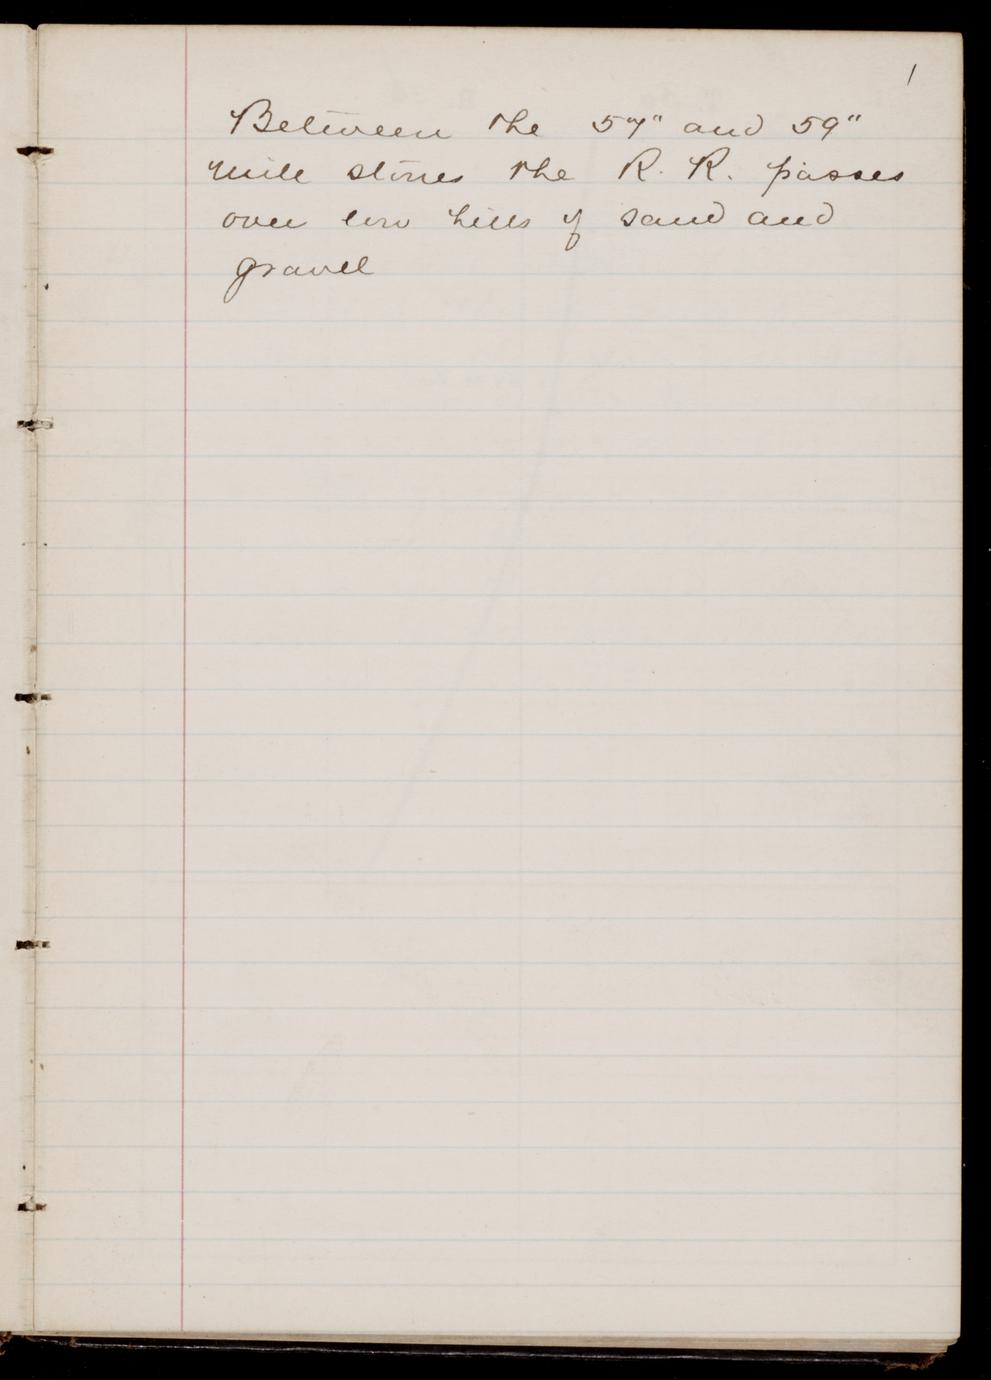 1
Between the 57" and 59"
mile stones the R. R. passes
over low hills of sand and
gravel